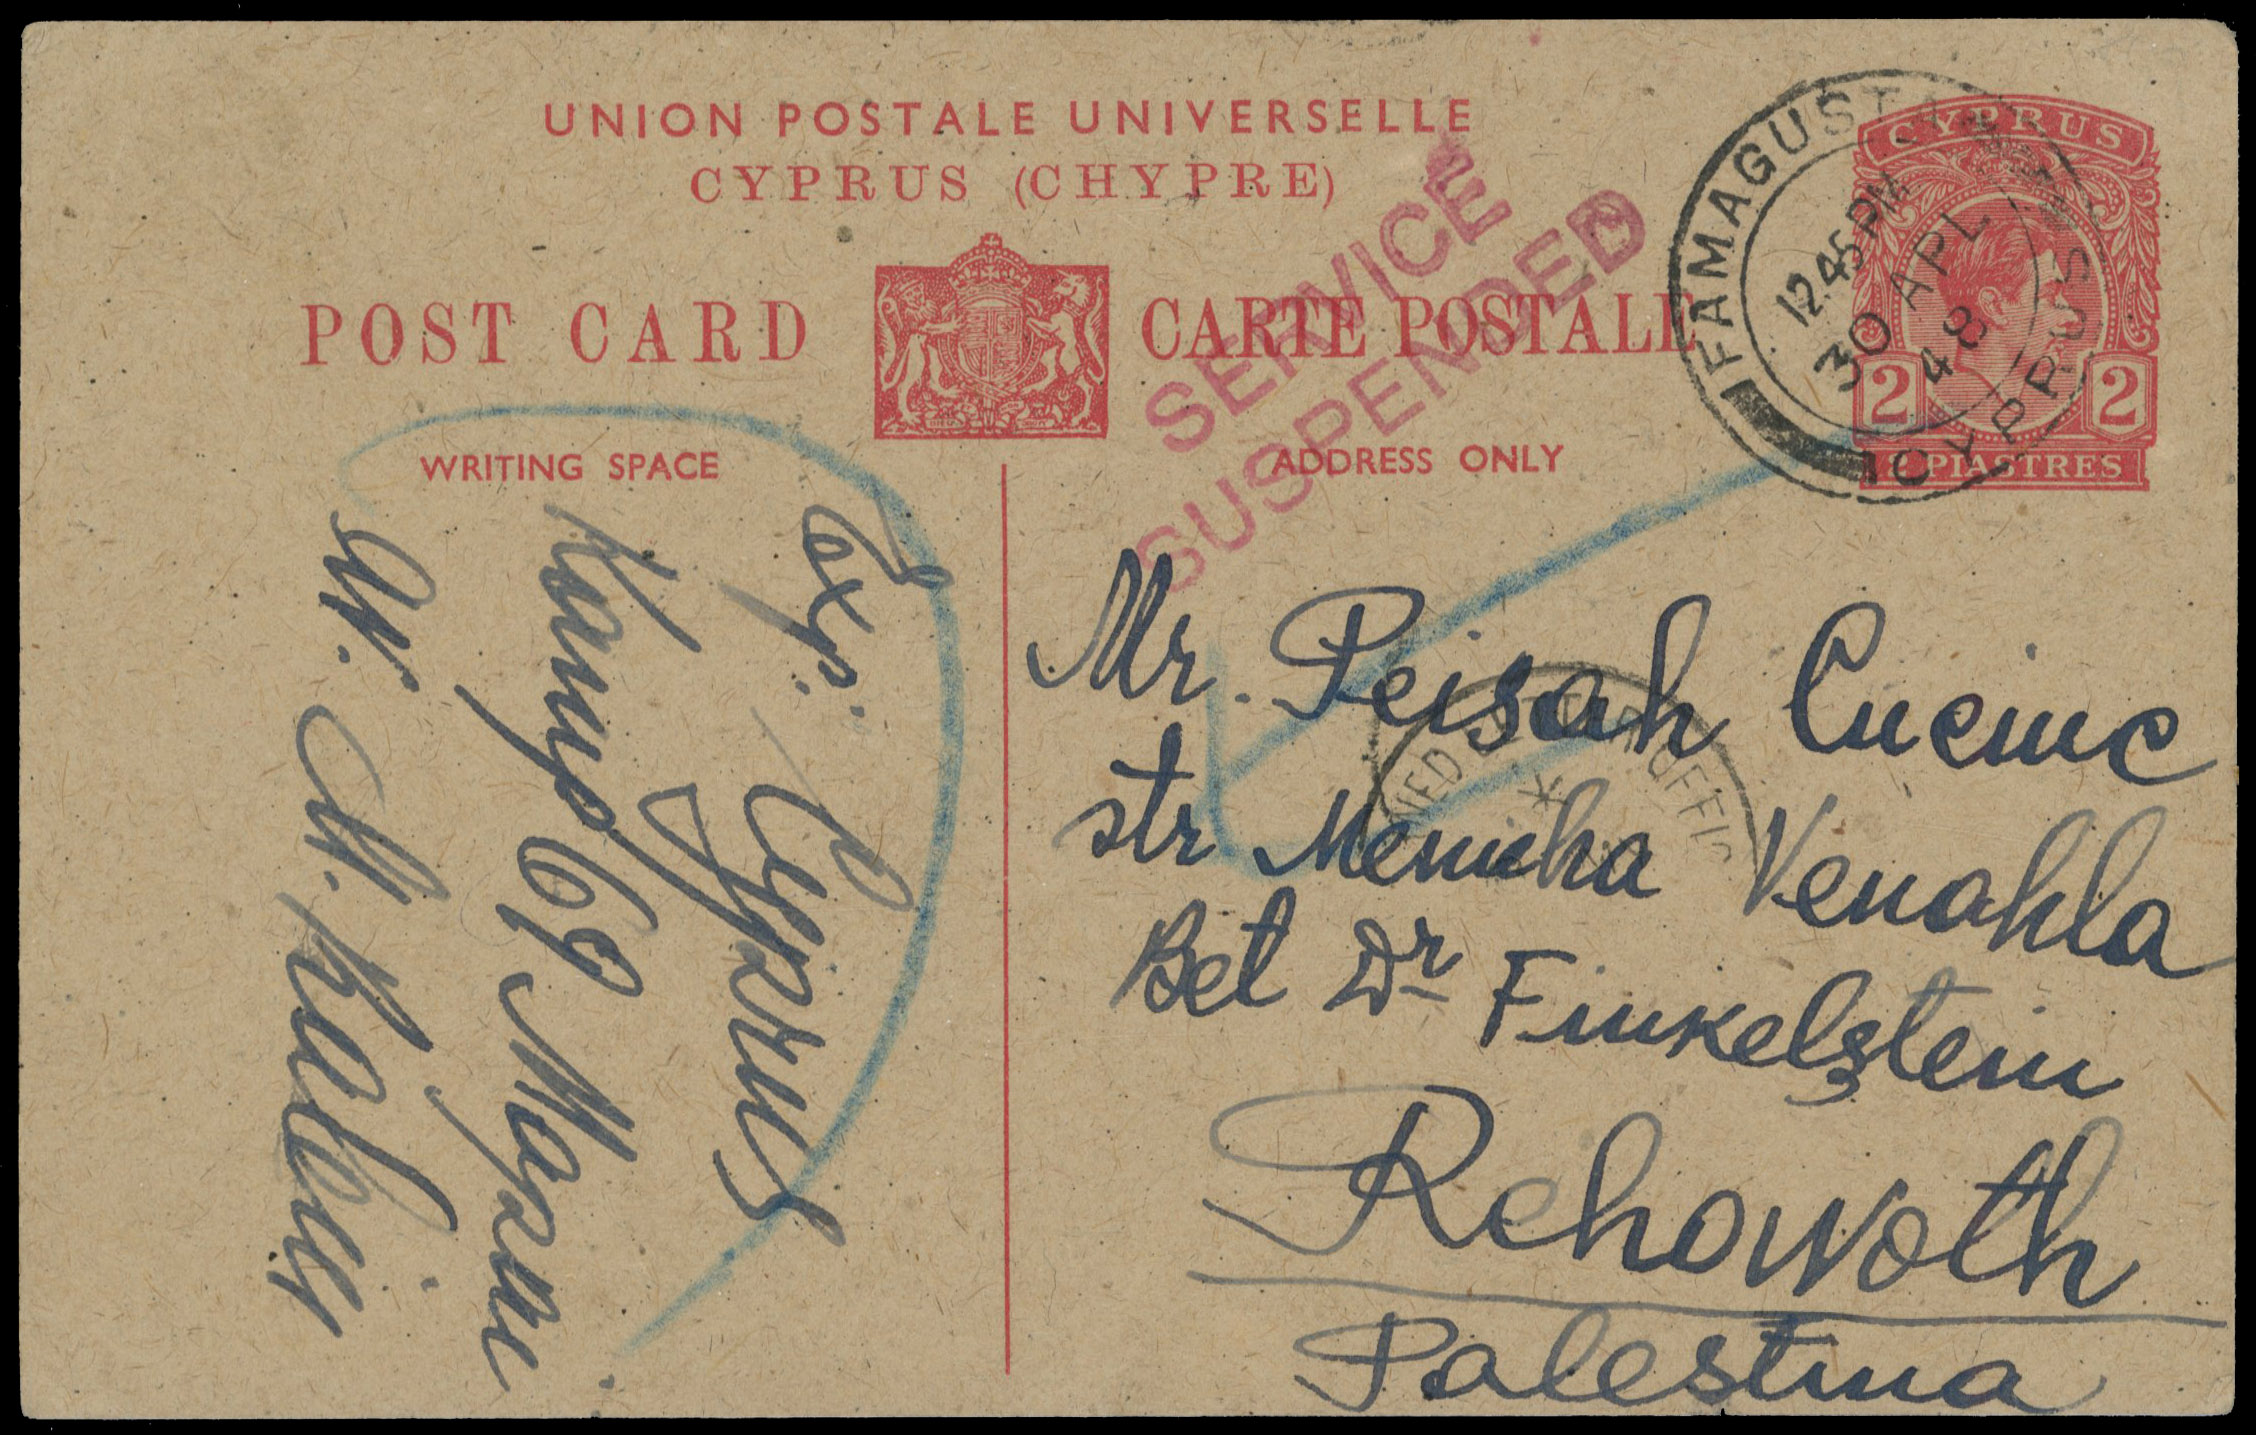 UNION POSTALE UNIVERSELLE
CYPRUS (CHYPRE)
POST CARD
CARTE POSTALE
WRITING SPACE
ADDRESS ONLY
SERVICE
SUSPENDED
FAMAGUSTA
12.45 PM
30 APL
48
CYPRUS
CYPRUS
2 2
2 PIASTRES
Exp: Cyprus
Kamp 69
Mr. Peisah
str Menuha Venahla
Bet Dr Finkelstein
Rehowoth
Palestina
LETTER OFFIC